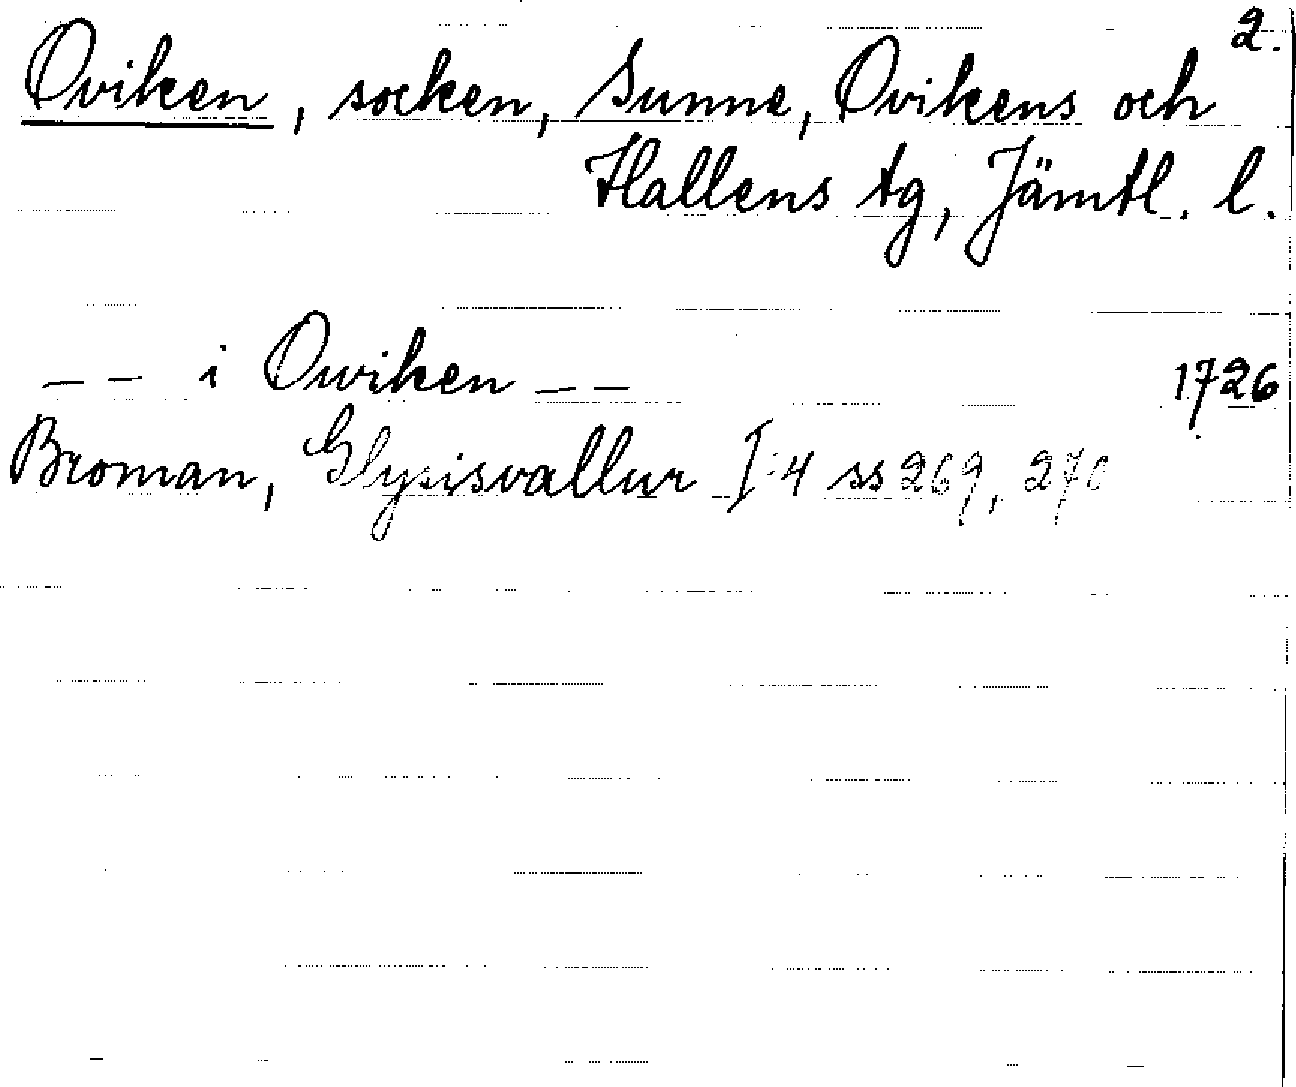 2.
Oviken, socken, Sunne, Ovikens och
Hallens tg, Jämtl. l.
— — i Owiken — — 1726
Broman, Glysisvallur I:4 ss 269, 270